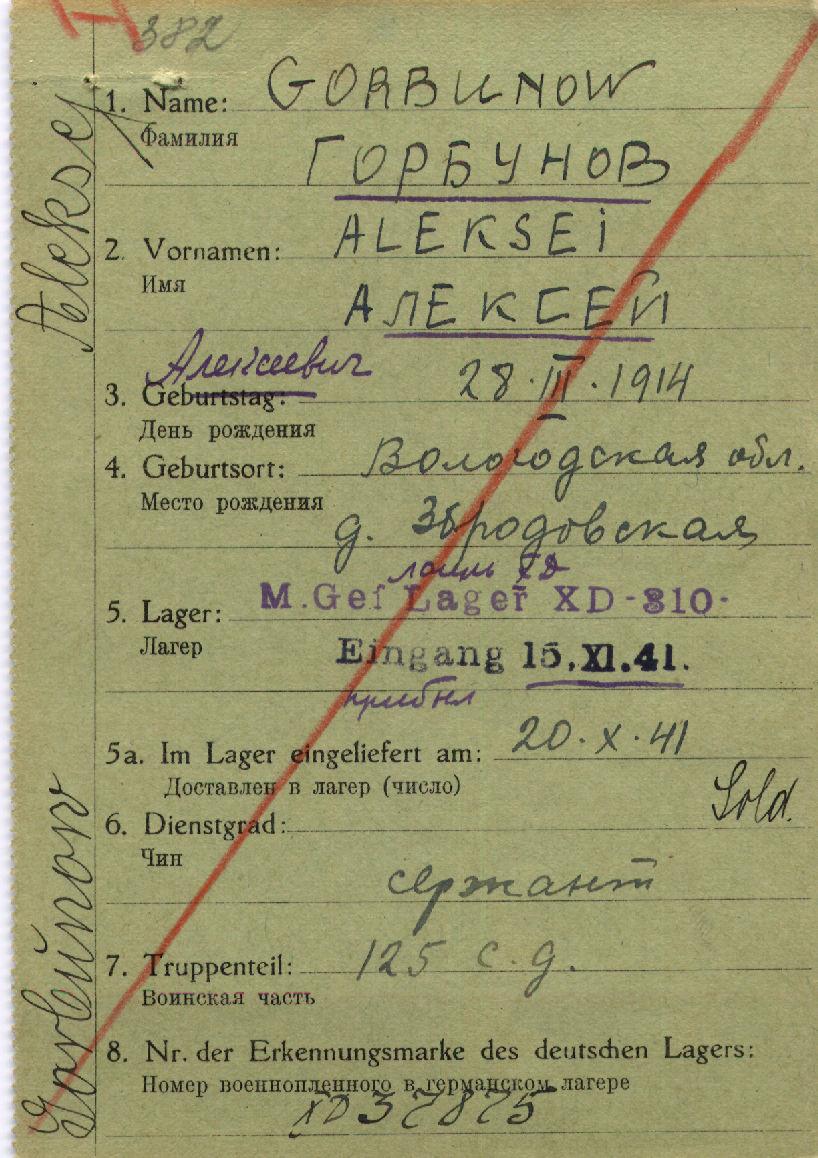 382
1. Name: GORBUNOW
Фамилия
ГОРБУНОВ
2. Vornamen: ALEKSEI
Имя
АЛЕКСЕЙ
Алексеевич
3. Geburtstag: 28·III·1914
День рождения
4. Geburtsort: Вологодская обл.
Место рождения
д. Збродовская
лагерь XD
5. Lager: M.Gef Lager XD-310-
Лагер
Eingang 15.XI.41.
прибыл
5a. Im Lager eingeliefert am: 20·X·41
Доставлен в лагер (число)
Sold.
6. Dienstgrad:
Чин
сержант
7. Truppenteil: 125 с.д.
Воинская часть
8. Nr. der Erkennungsmarke des deutschen Lagers:
Номер военнопленного в германском лагере
XD 37875
Gorbunow Aleksej